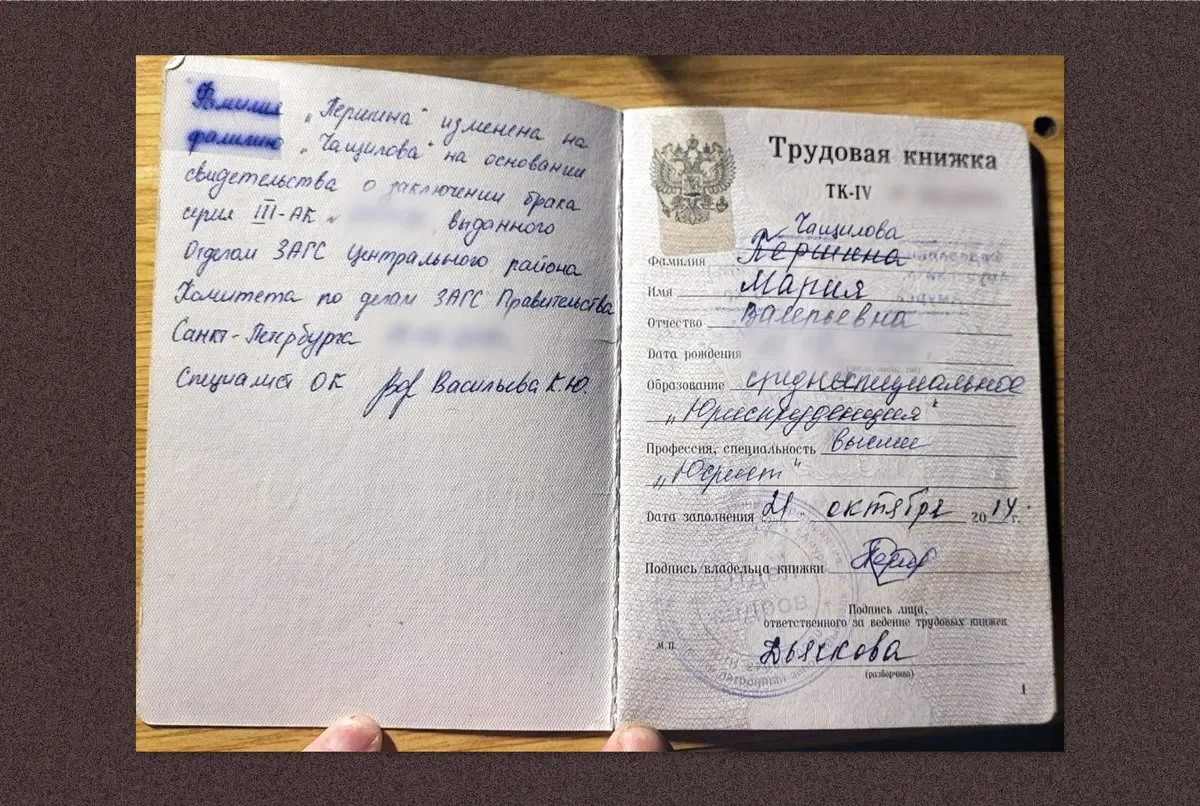 Фамилия „Першина“ изменена на
фамилию „Чащилова“ на основании
свидетельства о заключении брака
серия III-АК выданного
Отделам ЗАГС Центрального района
Комитета по делам ЗАГС Правительства
Санкт-Петербурга
Специалист ОК Васильева К.Ю.
Трудовая книжка
ТК-IV
Чащилова
Фамилия Першина
Имя Мария
Отчество Валерьевна
Дата рождения
Образование среднеспециальное
„Юриспруденция“
Профессия, специальность высшее
„Юрист“
Дата заполнения 21 октября 2014 г.
Подпись владельца книжки
Подпись лица,
ответственного за ведение трудовых книжек
м.п. Дьячкова
(разборчиво)
ОТДЕЛ
КАДРОВ
1